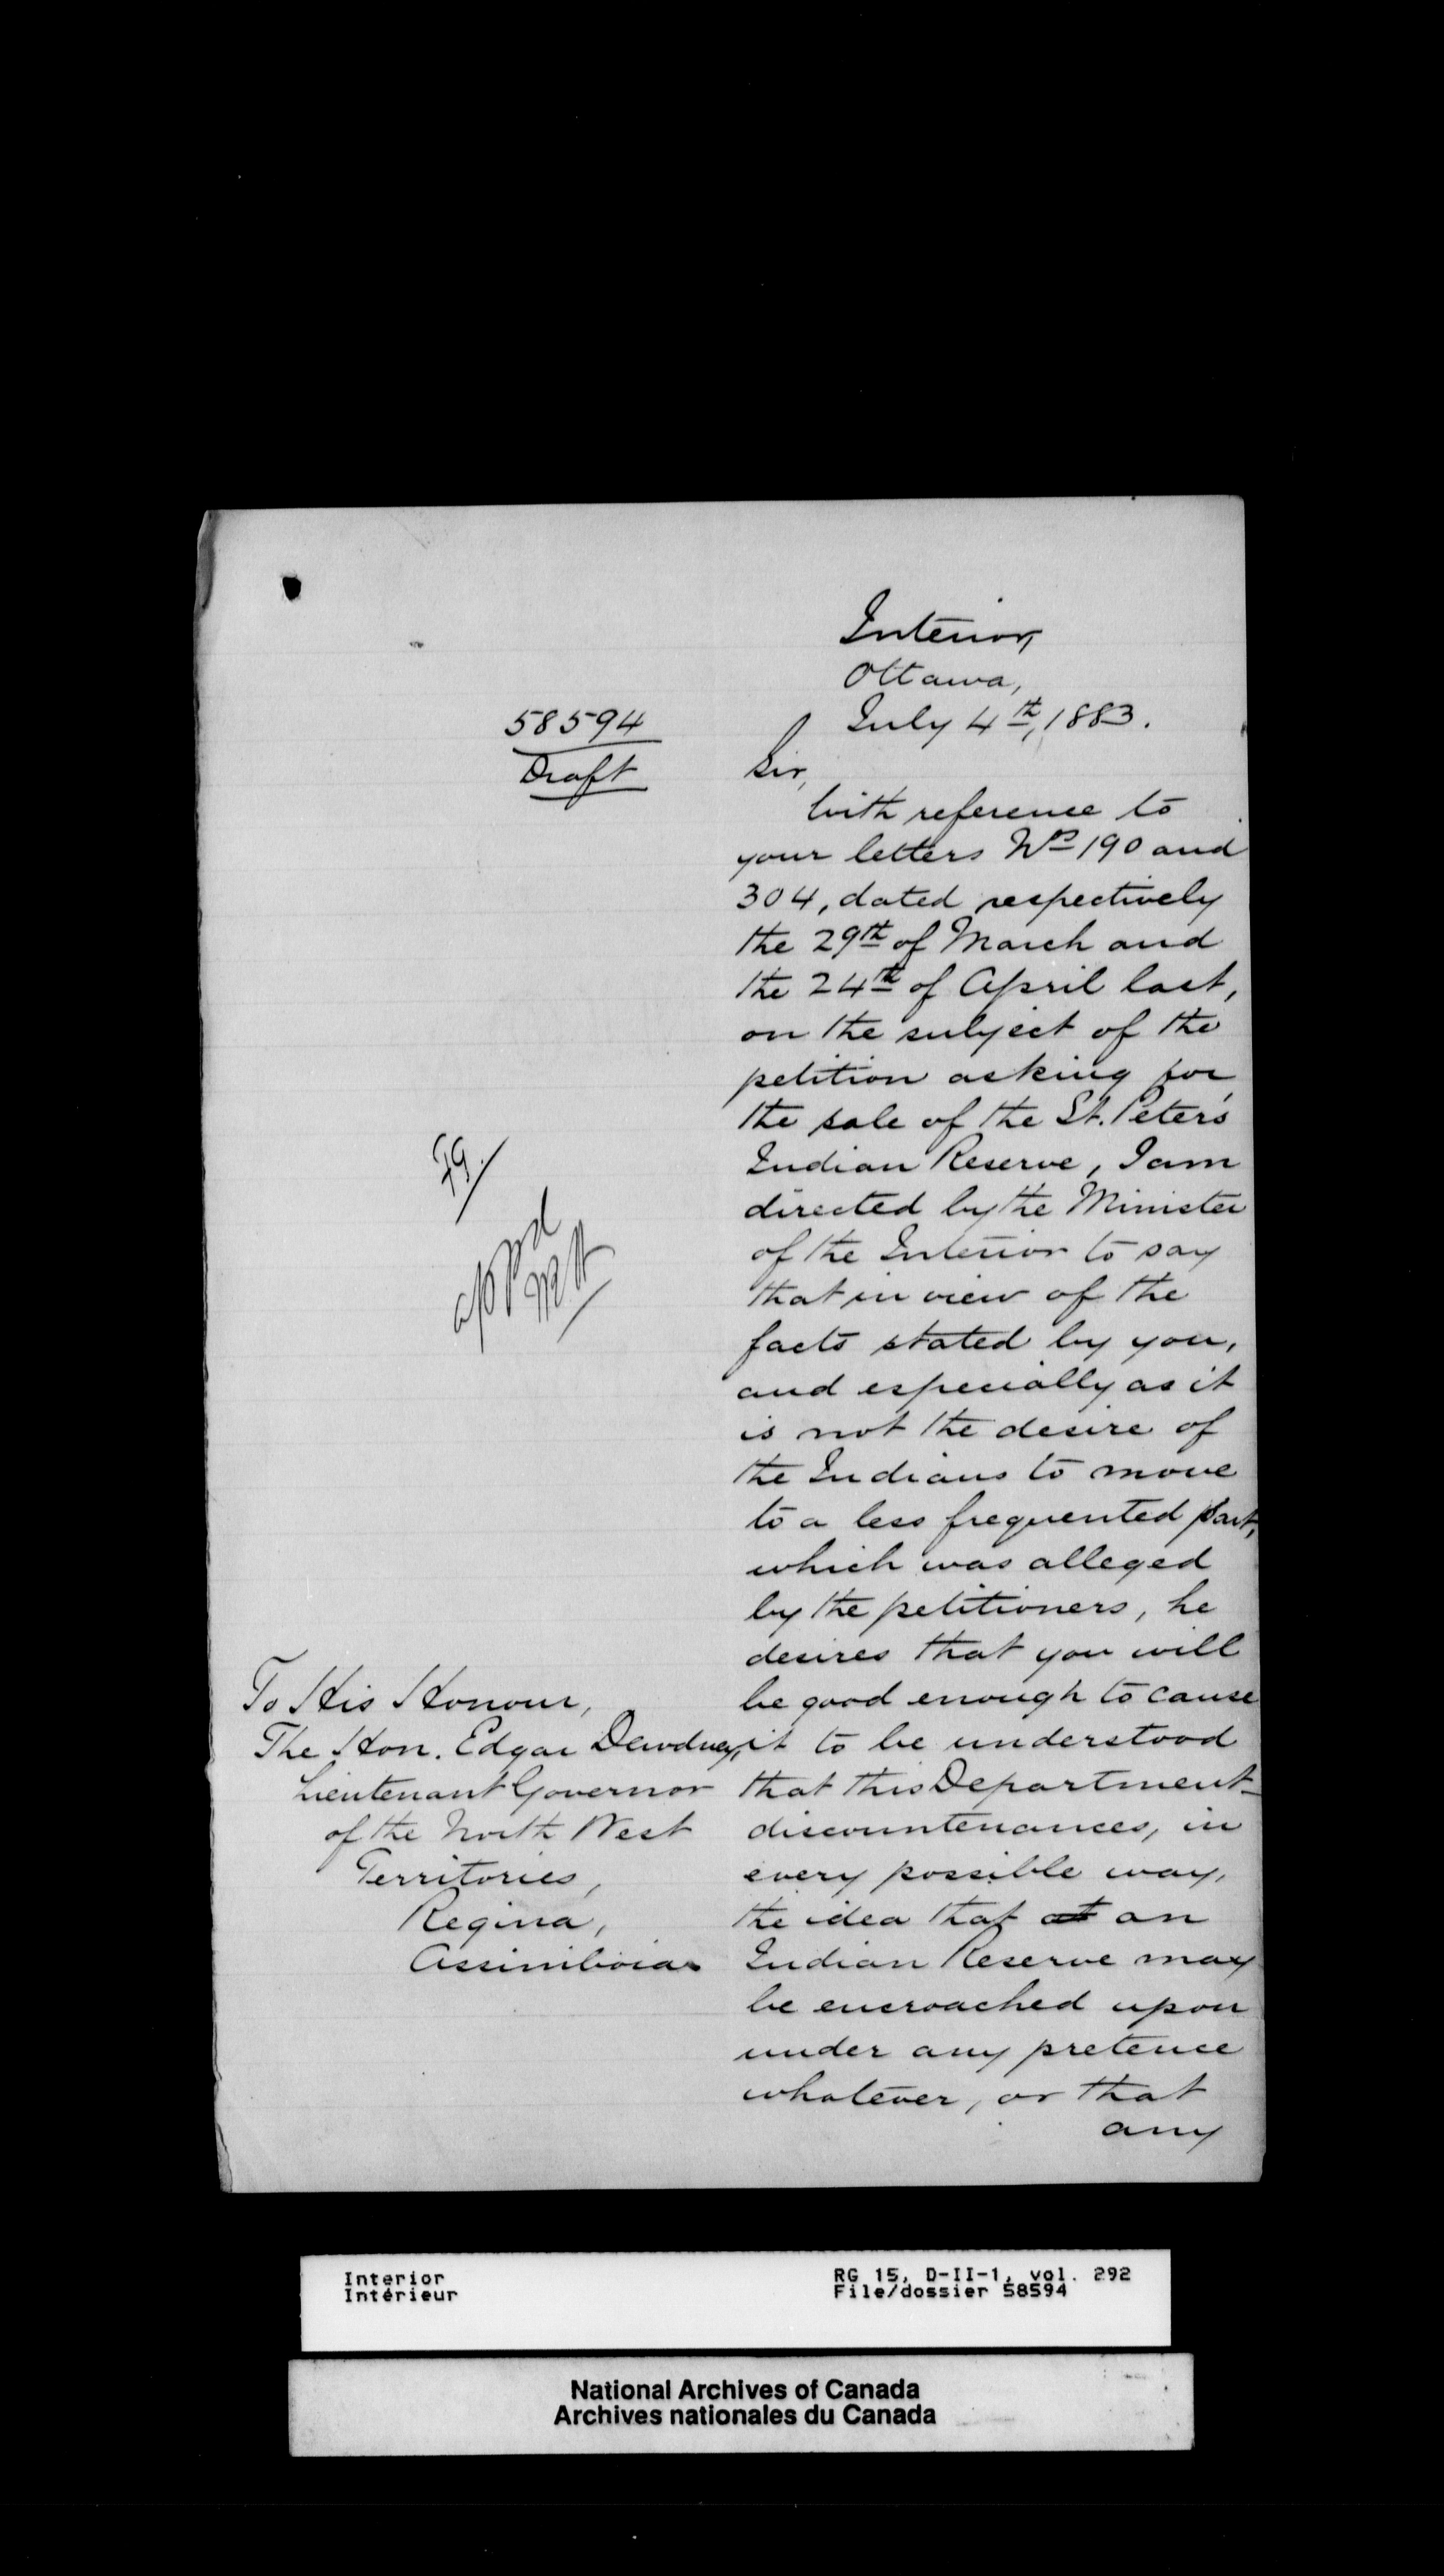 Interior,
Ottawa,
July 4th, 1883.
58594
Draft
Sir,
With reference to
your letters Nos 190 and
304, dated respectively
the 29th of March and
the 24th of April last,
on the subject of the
petition asking for
the sale of the St. Peter's
Indian Reserve, I am
directed by the Minister
of the Interior to say
that in view of the
facts stated by you,
and especially as it
is not the desire of
the Indians to move
to a less frequented part,
which was alleged
by the petitioners, he
desires that you will
be good enough to cause
it to be understood
that this Department
discountenances, in
every possible way,
the idea that an
Indian Reserve may
be encroached upon
under any pretence
whatever, or that
any
To His Honour,
The Hon. Edgar Dewdney,
Lieutenant Governor
of the North West
Territories,
Regina,
Assiniboia
Interior
Intérieur
RG 15, D-II-1, vol. 292
File/dossier 58594
National Archives of Canada
Archives nationales du Canada